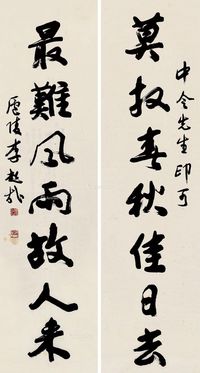 中令先生印可
莫放春秋佳日去
最難風雨故人来
廬陵李超哉